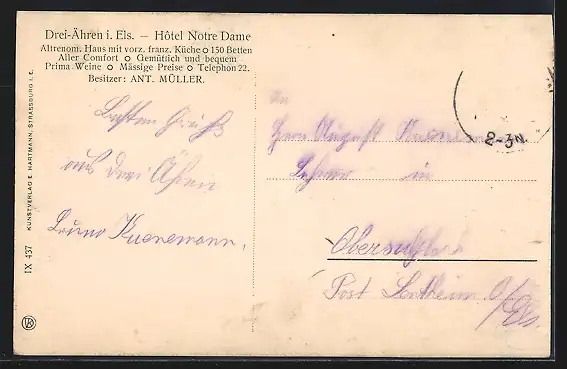 Drei-Ähren i. Els. — Hôtel Notre Dame
Altrenom. Haus mit vorz. franz. Küche o 150 Betten
Aller Comfort o Gemütlich und bequem
Prima Weine o Mässige Preise o Telephon 22.
Besitzer: ANT. MÜLLER.
Besten Gruß
aus Drei Ähren
Bruno Kuenemann.
KUNSTVERLAG E. HARTMANN, STRASSBURG I. E.
IX 437
2-3N.
An
Herrn August Kuenemann
Lehrer in
Post Sentheim O/Els.